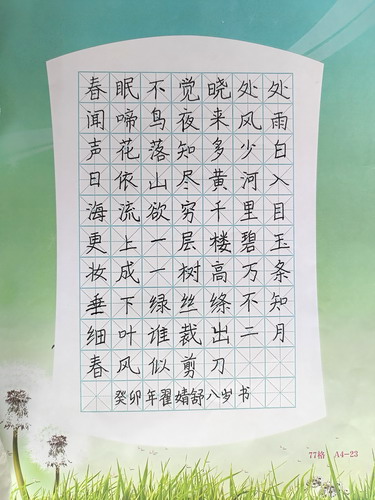 春眠不觉晓处处
闻啼鸟夜来风雨
声花落知多少白
日依山尽黄河入
海流欲穷千里目
更上一层楼碧玉
妆成一树高万条
垂下绿丝绦不知
细叶谁裁出二月
春风似剪刀
癸卯年翟婧舒八岁书
77格 A4-23